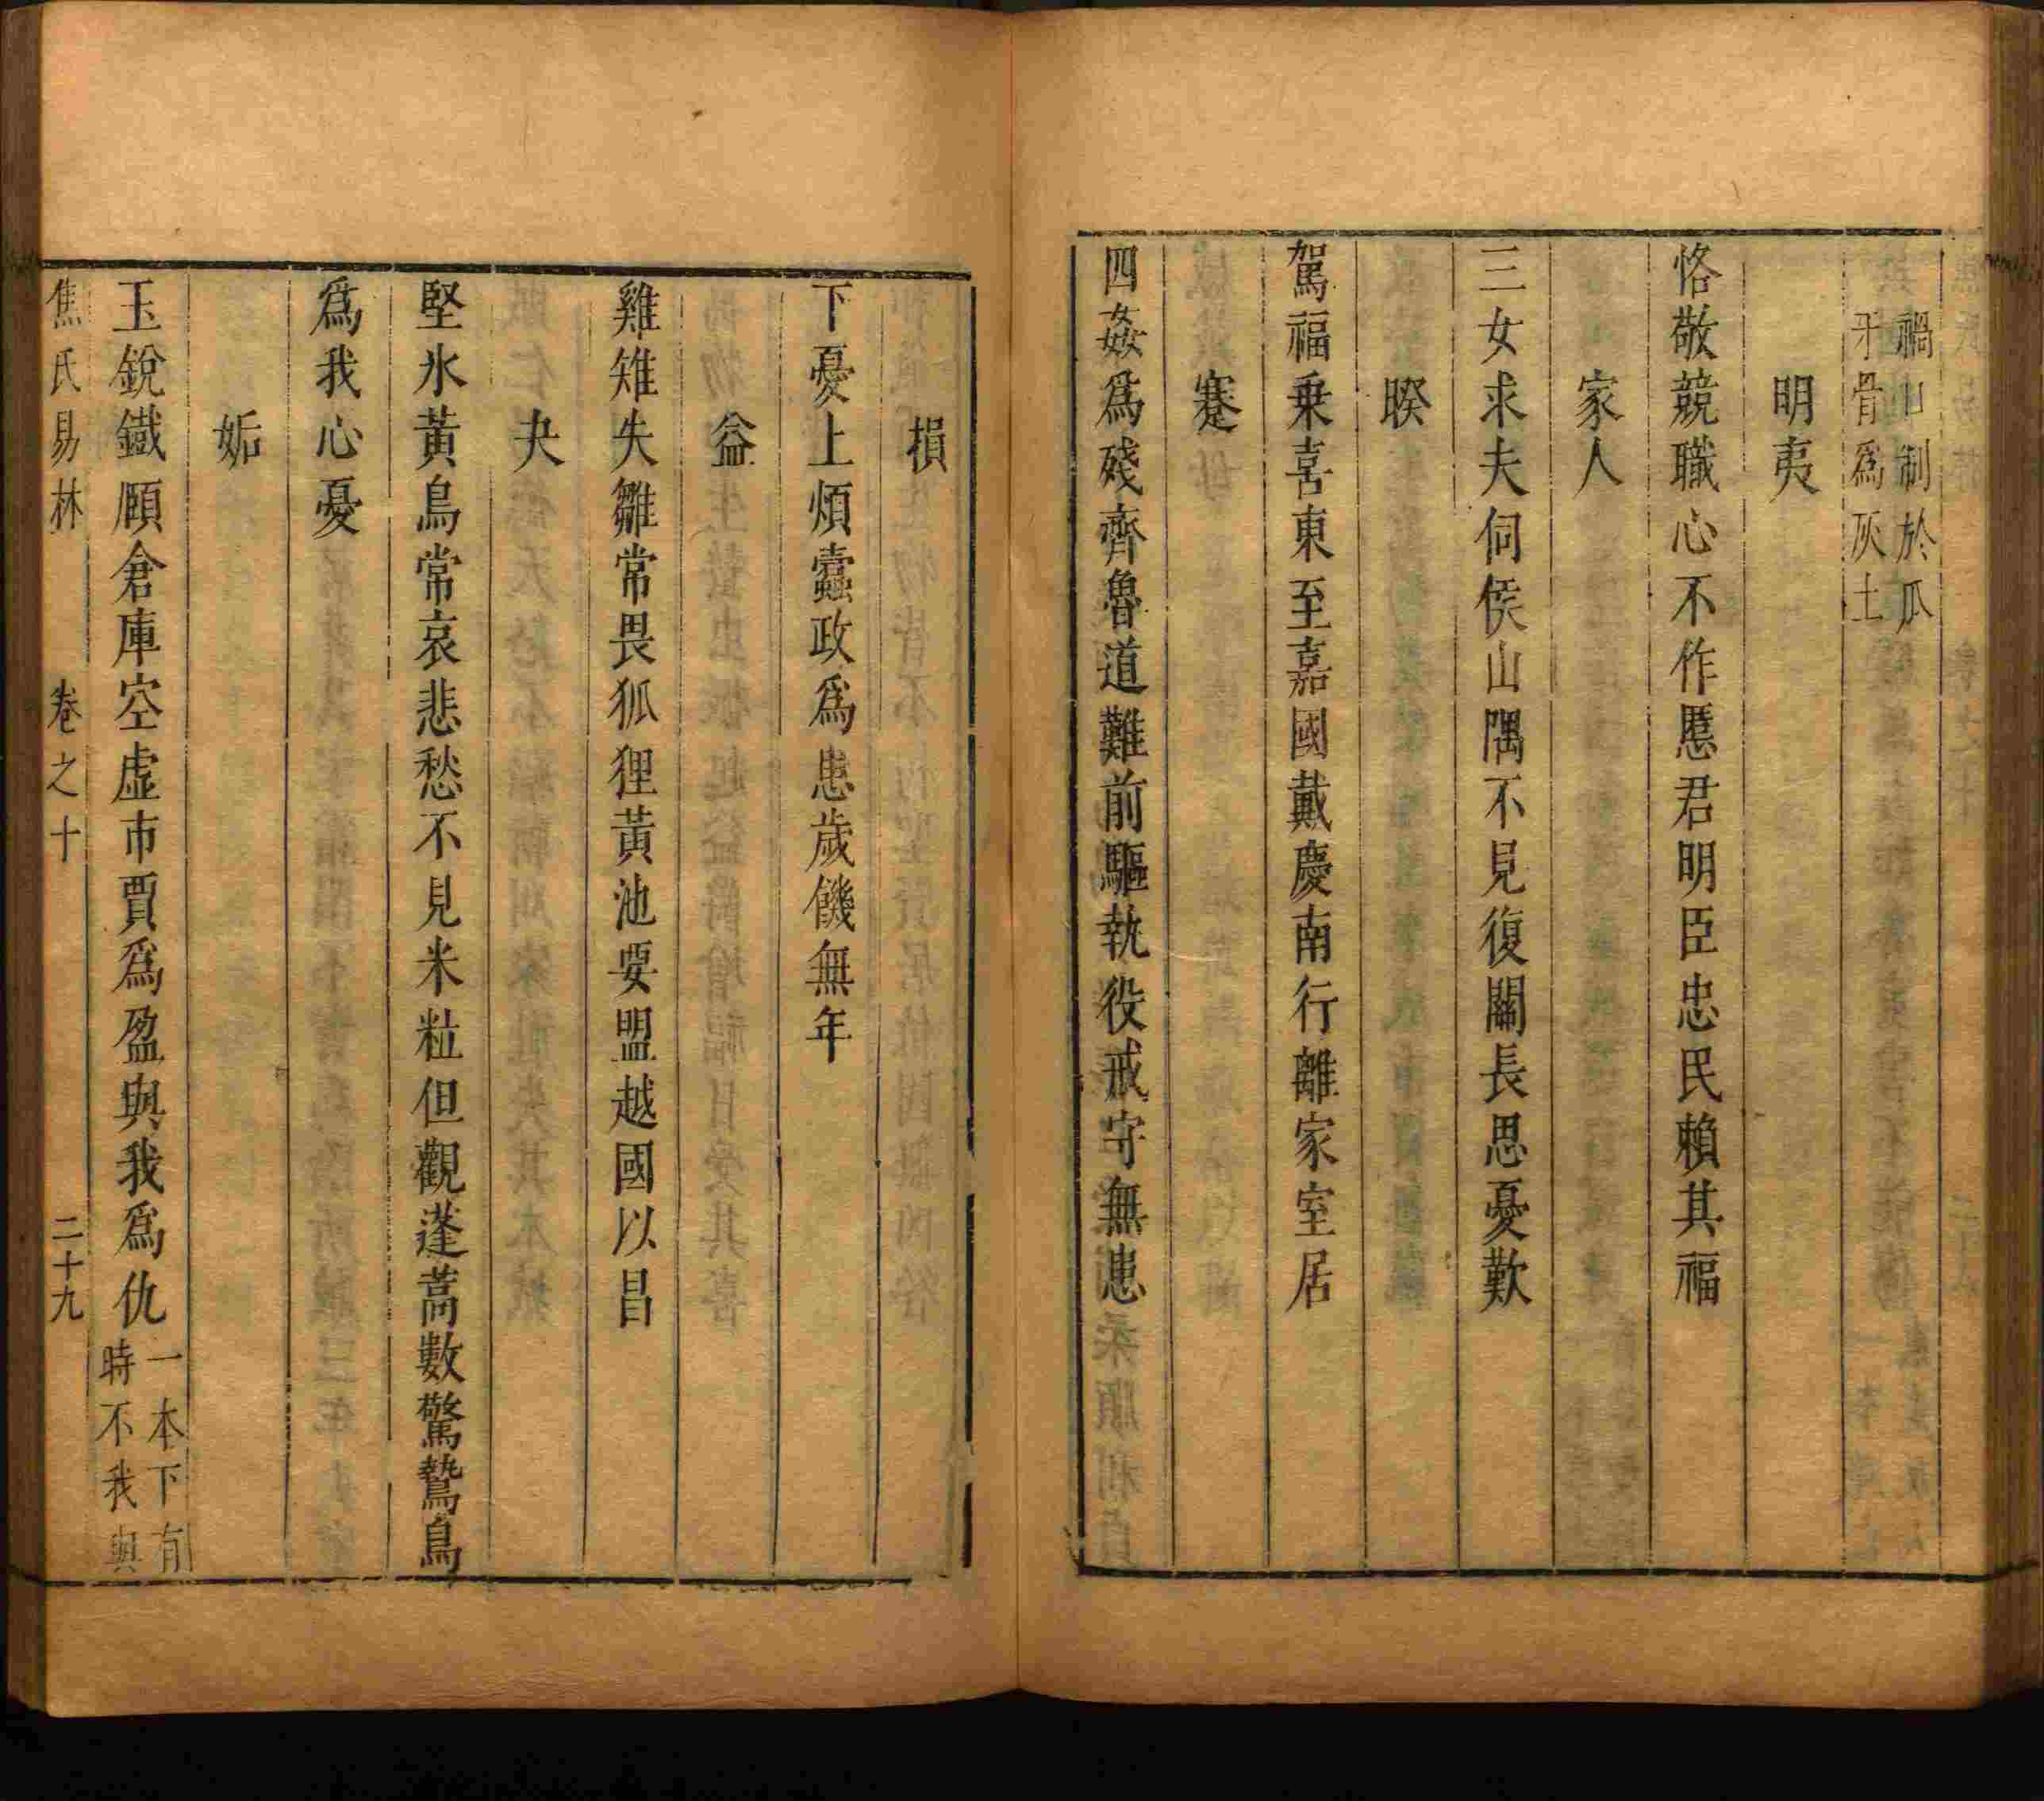 禍山制於瓜
牙骨爲灰土
明夷
恪敬競職心不作慝君明臣忠民賴其福
家人
三女求夫伺候山隅不見復關長思憂歎
睽
駕福乗喜東至嘉國戴慶南行離家室居
蹇
四姦爲殘齊魯道難前驅執役戒守無患
損
下憂上煩蠹政爲患歲饑無年
益
雞雉失雛常畏狐狸黃池要盟越國以昌
夬
堅氷黃鳥常哀悲愁不見米粒但觀蓬蒿數驚鷙鳥
爲我心憂
姤
玉銳鐵頤倉庫空虛市賈爲盈與我爲仇
一本下有
時不我與
焦氏易林 卷之十 二十九